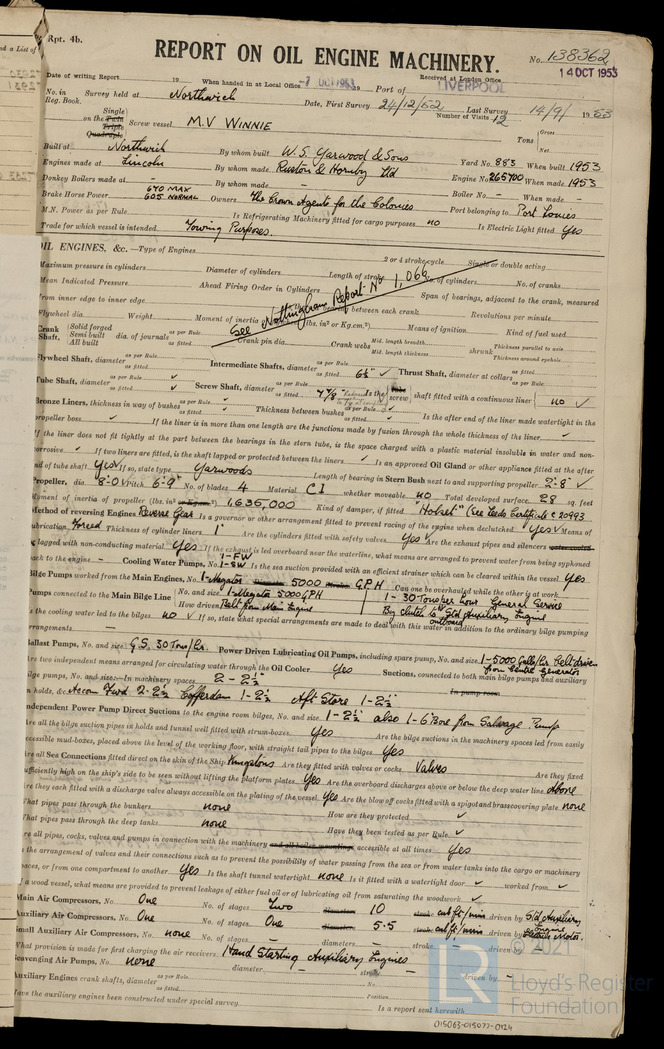 Rpt. 4b.
REPORT ON OIL ENGINE MACHINERY.
No. 138362
14 OCT 1953
Date of writing Report 19 When handed in at Local Office -7 OCT 1953 19 Port of LIVERPOOL
Received at London Office
No. in Reg. Book. Survey held at Northwich Date, First Survey 24/12/52 Last Survey 14/9/ 1953
Number of Visits 12
on the Single Twin Triple Quadruple Screw vessel M.V WINNIE Tons Gross Net
Built at Northwich By whom built W.S. Yarwood & Sons Yard No. 883 When built 1953
Engines made at Lincoln By whom made Ruston & Hornby Ltd Engine No. 265700 When made 1953
Donkey Boilers made at - By whom made - Boiler No. - When made -
Brake Horse Power 670 MAX 605 NORMAL Owners The Crown Agents for the Colonies Port belonging to Port Louies
M.N. Power as per Rule Is Refrigerating Machinery fitted for cargo purposes no Is Electric Light fitted Yes
Trade for which vessel is intended Towing Purposes.
OIL ENGINES, &c.—Type of Engines 2 or 4 stroke cycle Single or double acting
Maximum pressure in cylinders Diameter of cylinders Length of stroke No. of cylinders No. of cranks
Mean Indicated Pressure Ahead Firing Order in Cylinders Span of bearings, adjacent to the crank, measured
from inner edge to inner edge between each crank Revolutions per minute
See Nottingham Report No 1,066
Flywheel dia. Weight Moment of inertia (lbs. in² or Kg.cm.²) Means of ignition Kind of fuel used
Crank Shaft, Solid forged Semi built All built dia. of journals as per Rule as fitted Crank pin dia. Crank webs Mid. length breadth Mid. length thickness shrunk Thickness parallel to axis Thickness around eyehole
Flywheel Shaft, diameter as per Rule as fitted Intermediate Shafts, diameter as per Rule as fitted 6½" ✓ Thrust Shaft, diameter at collars as per Rule as fitted
Tube Shaft, diameter as per Rule as fitted ✓ Screw Shaft, diameter as per Rule as fitted 7 7/8" Is the tube screw shaft fitted with a continuous liner no ✓
Bronze Liners, thickness in way of bushes as per Rule as fitted ✓ Thickness between bushes as per Rule as fitted ✓ Is the after end of the liner made watertight in the
propeller boss ✓ If the liner is in more than one length are the junctions made by fusion through the whole thickness of the liner ✓
If the liner does not fit tightly at the part between the bearings in the stern tube, is the space charged with a plastic material insoluble in water and non-
corrosive ✓ If two liners are fitted, is the shaft lapped or protected between the liners ✓ Is an approved Oil Gland or other appliance fitted at the after
end of tube shaft Yes ✓ If so, state type Yarwoods Length of bearing in Stern Bush next to and supporting propeller 2'-8" ✓
Propeller, dia. 8'-0" Pitch 6'-9" No. of blades 4 Material C I whether moveable no Total developed surface 28 sq. feet
Moment of inertia of propeller (lbs. in² or Kg.cm.²) 1,636,000 Kind of damper, if fitted "Holset" (see Leeds Certificate C 20993
Method of reversing Engines Reverse Gear Is a governor or other arrangement fitted to prevent racing of the engine when declutched Yes ✓ Means of
lubrication Forced Thickness of cylinder liners 1" Are the cylinders fitted with safety valves Yes Are the exhaust pipes and silencers water cooled
or lagged with non-conducting material Yes If the exhaust is led overboard near the waterline, what means are arranged to prevent water from being syphoned
back to the engine - Cooling Water Pumps, No. 1-FW 1-SW Is the sea suction provided with an efficient strainer which can be cleared within the vessel Yes
Bilge Pumps worked from the Main Engines, No. 1-Megator 5000 GPH Can one be overhauled while the other is at work
Pumps connected to the Main Bilge Line No. and size 1-Megator 5000 GPH 1-30 Tons per hour General Service
How driven Belt from Main Engine By Clutch to Stbd Auxiliary Engine
Is the cooling water led to the bilges no ✓ If so, state what special arrangements are made to deal with this water in addition to the ordinary bilge pumping
arrangements —
Ballast Pumps, No. and size G.S. 30 Tons/hr. Power Driven Lubricating Oil Pumps, including spare pump, No. and size 1-5000 Galls/hr belt driven
Are two independent means arranged for circulating water through the Oil Cooler Yes Suctions, connected to both main bilge pumps and auxiliary
bilge pumps, No. and size:—In machinery spaces 2 - 2½" In pump room
In holds, &c. Accom Fwd 2-2½" Cofferdam 1-2½" Aft Store 1-2½"
Independent Power Pump Direct Suctions to the engine room bilges, No. and size 1-2½" also 1-6" Bore from Salvage Pump
Are all the bilge suction pipes in holds and tunnel well fitted with strum-boxes Yes Are the bilge suctions in the machinery spaces led from easily
accessible mud-boxes, placed above the level of the working floor, with straight tail pipes to the bilges Yes
Are all Sea Connections fitted direct on the skin of the Ship Are they fitted with valves or cocks Valves Are they fixed
sufficiently high on the ship's side to be seen without lifting the platform plates Yes Are the overboard discharges above or below the deep water line Above
Are they each fitted with a discharge valve always accessible on the plating of the vessel Yes Are the blow off cocks fitted with a spigot and brass covering plate none
What pipes pass through the bunkers none How are they protected ✓
What pipes pass through the deep tanks none Have they been tested as per Rule ✓
Are all pipes, cocks, valves and pumps in connection with the machinery and all boiler mountings accessible at all times Yes
Is the arrangement of valves and their connections such as to prevent the possibility of water passing from the sea or from water tanks into the cargo or machinery
spaces, or from one compartment to another Yes Is the shaft tunnel watertight none Is it fitted with a watertight door ✓ worked from ✓
If a wood vessel, what means are provided to prevent leakage of either fuel oil or of lubricating oil from saturating the woodwork ✓
Main Air Compressors, No. One No. of stages Two diameters 10 stroke cub ft/min driven by Stbd Auxiliary Engine
Auxiliary Air Compressors, No. One No. of stages One diameters 5·5 stroke cub ft/min driven by Electric Motor.
Small Auxiliary Air Compressors, No. none No. of stages - diameters - stroke driven by
What provision is made for first charging the air receivers Hand Starting Auxiliary Engines
Scavenging Air Pumps, No. none diameter - stroke driven by -
Auxiliary Engines crank shafts, diameter as per Rule as fitted No. Position
Have the auxiliary engines been constructed under special survey Is a report sent herewith
© 2021
LR
Lloyd's Register
Foundation
015063-015077-0124